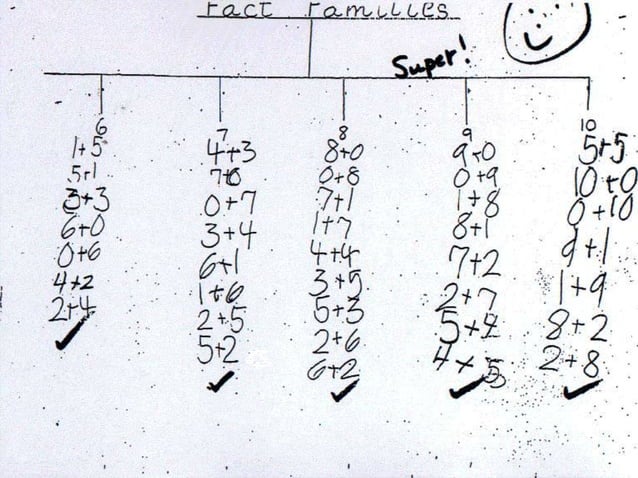 Fact Families
Super!
6 7 8 9 10
1+5 4+3 8+0 9+0 5+5
5+1 7+0 0+8 0+9 10+0
3+3 0+7 7+1 1+8 0+10
6+0 3+4 1+7 8+1 9+1
0+6 6+1 4+4 7+2 1+9
4+2 1+6 3+5 2+7 8+2
2+4 2+5 5+3 5+4 2+8
5+2 2+6 4+5
6+2